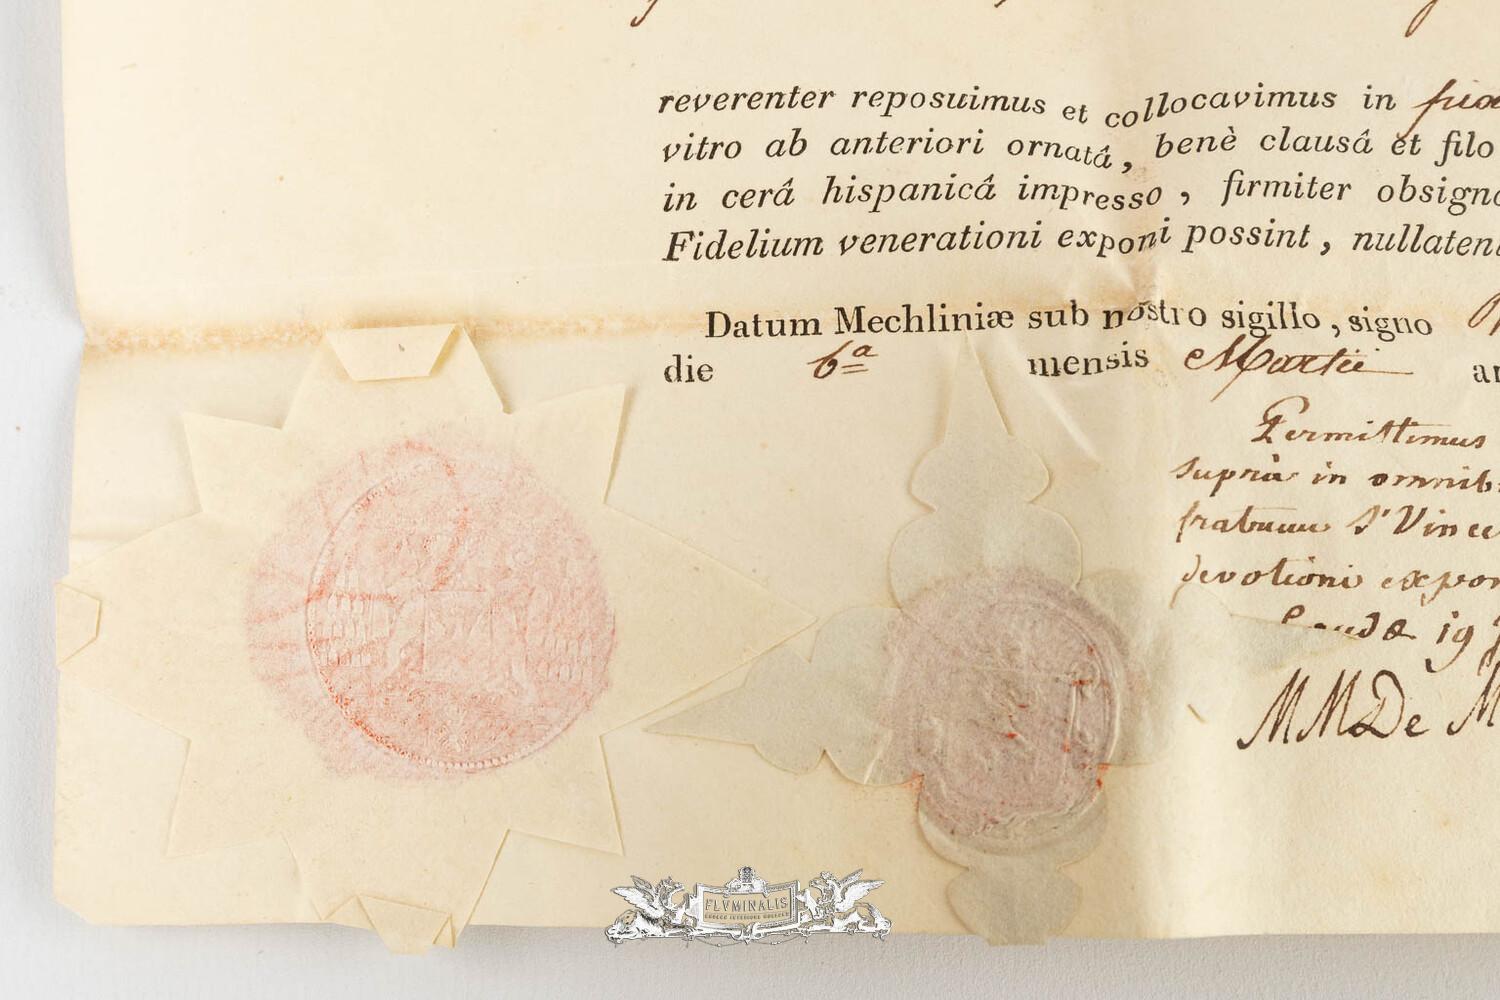 reverenter reposuimus et collocavimus in
vitro ab anteriori ornatâ, benè clausâ et filo
in cerâ hispanicâ impresso, firmiter obsign
Fidelium venerationi exponi possint, nullaten
Datum Mechliniæ sub nostro sigillo, signo
die 6ª mensis Martii
Permittimus
suprà in omnib
fratrum S' Vince
devotioni expo
19
MMDe M
FLVMINALIS